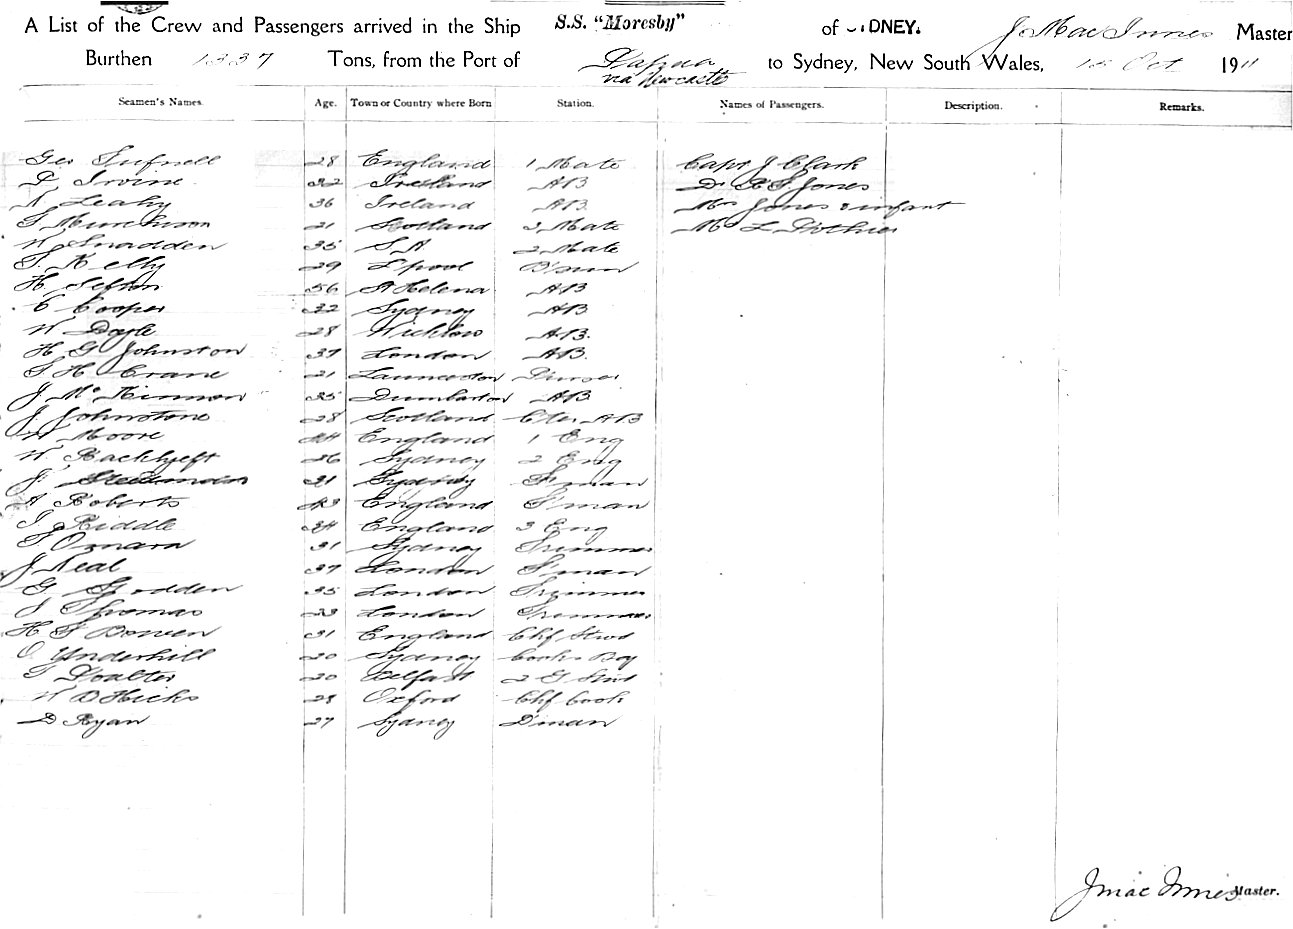 A List of the Crew and Passengers arrived in the Ship S.S. "Moresby" of SYDNEY. J. Mac Innes Master
Burthen 1337 Tons, from the Port of Papua via Newcastle to Sydney, New South Wales, Oct 1911
Seamen's Names. Age. Town or Country where Born Station. Names of Passengers. Description. Remarks.
Geo Tufnell 28 England 1 Mate Capt J Clark
Irvine 32 Ireland AB Dr Jones
Leahy 36 Ireland AB Mrs Jones & infant
Murchison 21 Scotland 3 Mate L
W Snadden 35 S.A. 2 Mate
T. Kelly 29 L'pool B'sun
H Sefton 56 St Helena AB
C Cooper 22 Sydney AB
W Doyle 28 Wicklow AB.
H G Johnston 37 London AB.
H Crane 21 Launceston
J McKinnon 35 Dumbarton AB
J Johnstone 28 Scotland AB
W Moore England 1 Eng
W Sydney 2 Eng
J 31 Sydney F'man
A Roberts 43 England F'man
Riddle 34 England 3 Eng
Omara 31 Sydney Trimmer
J Neal 37 London F'man
G. Godden 35 London Trimmer
Thomas 33 London Trimmer
H Bowen 31 England Chf Stwd
O Underhill 20 Sydney Cooks Boy
20 Belfast 2 G Stwd
W D Hicks 28 Oxford Chf Cook
D Ryan 27 Sydney D'man
J Mac Innes Master.